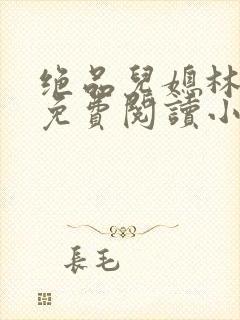 绝品兒媳林
免費閱讀小
長毛